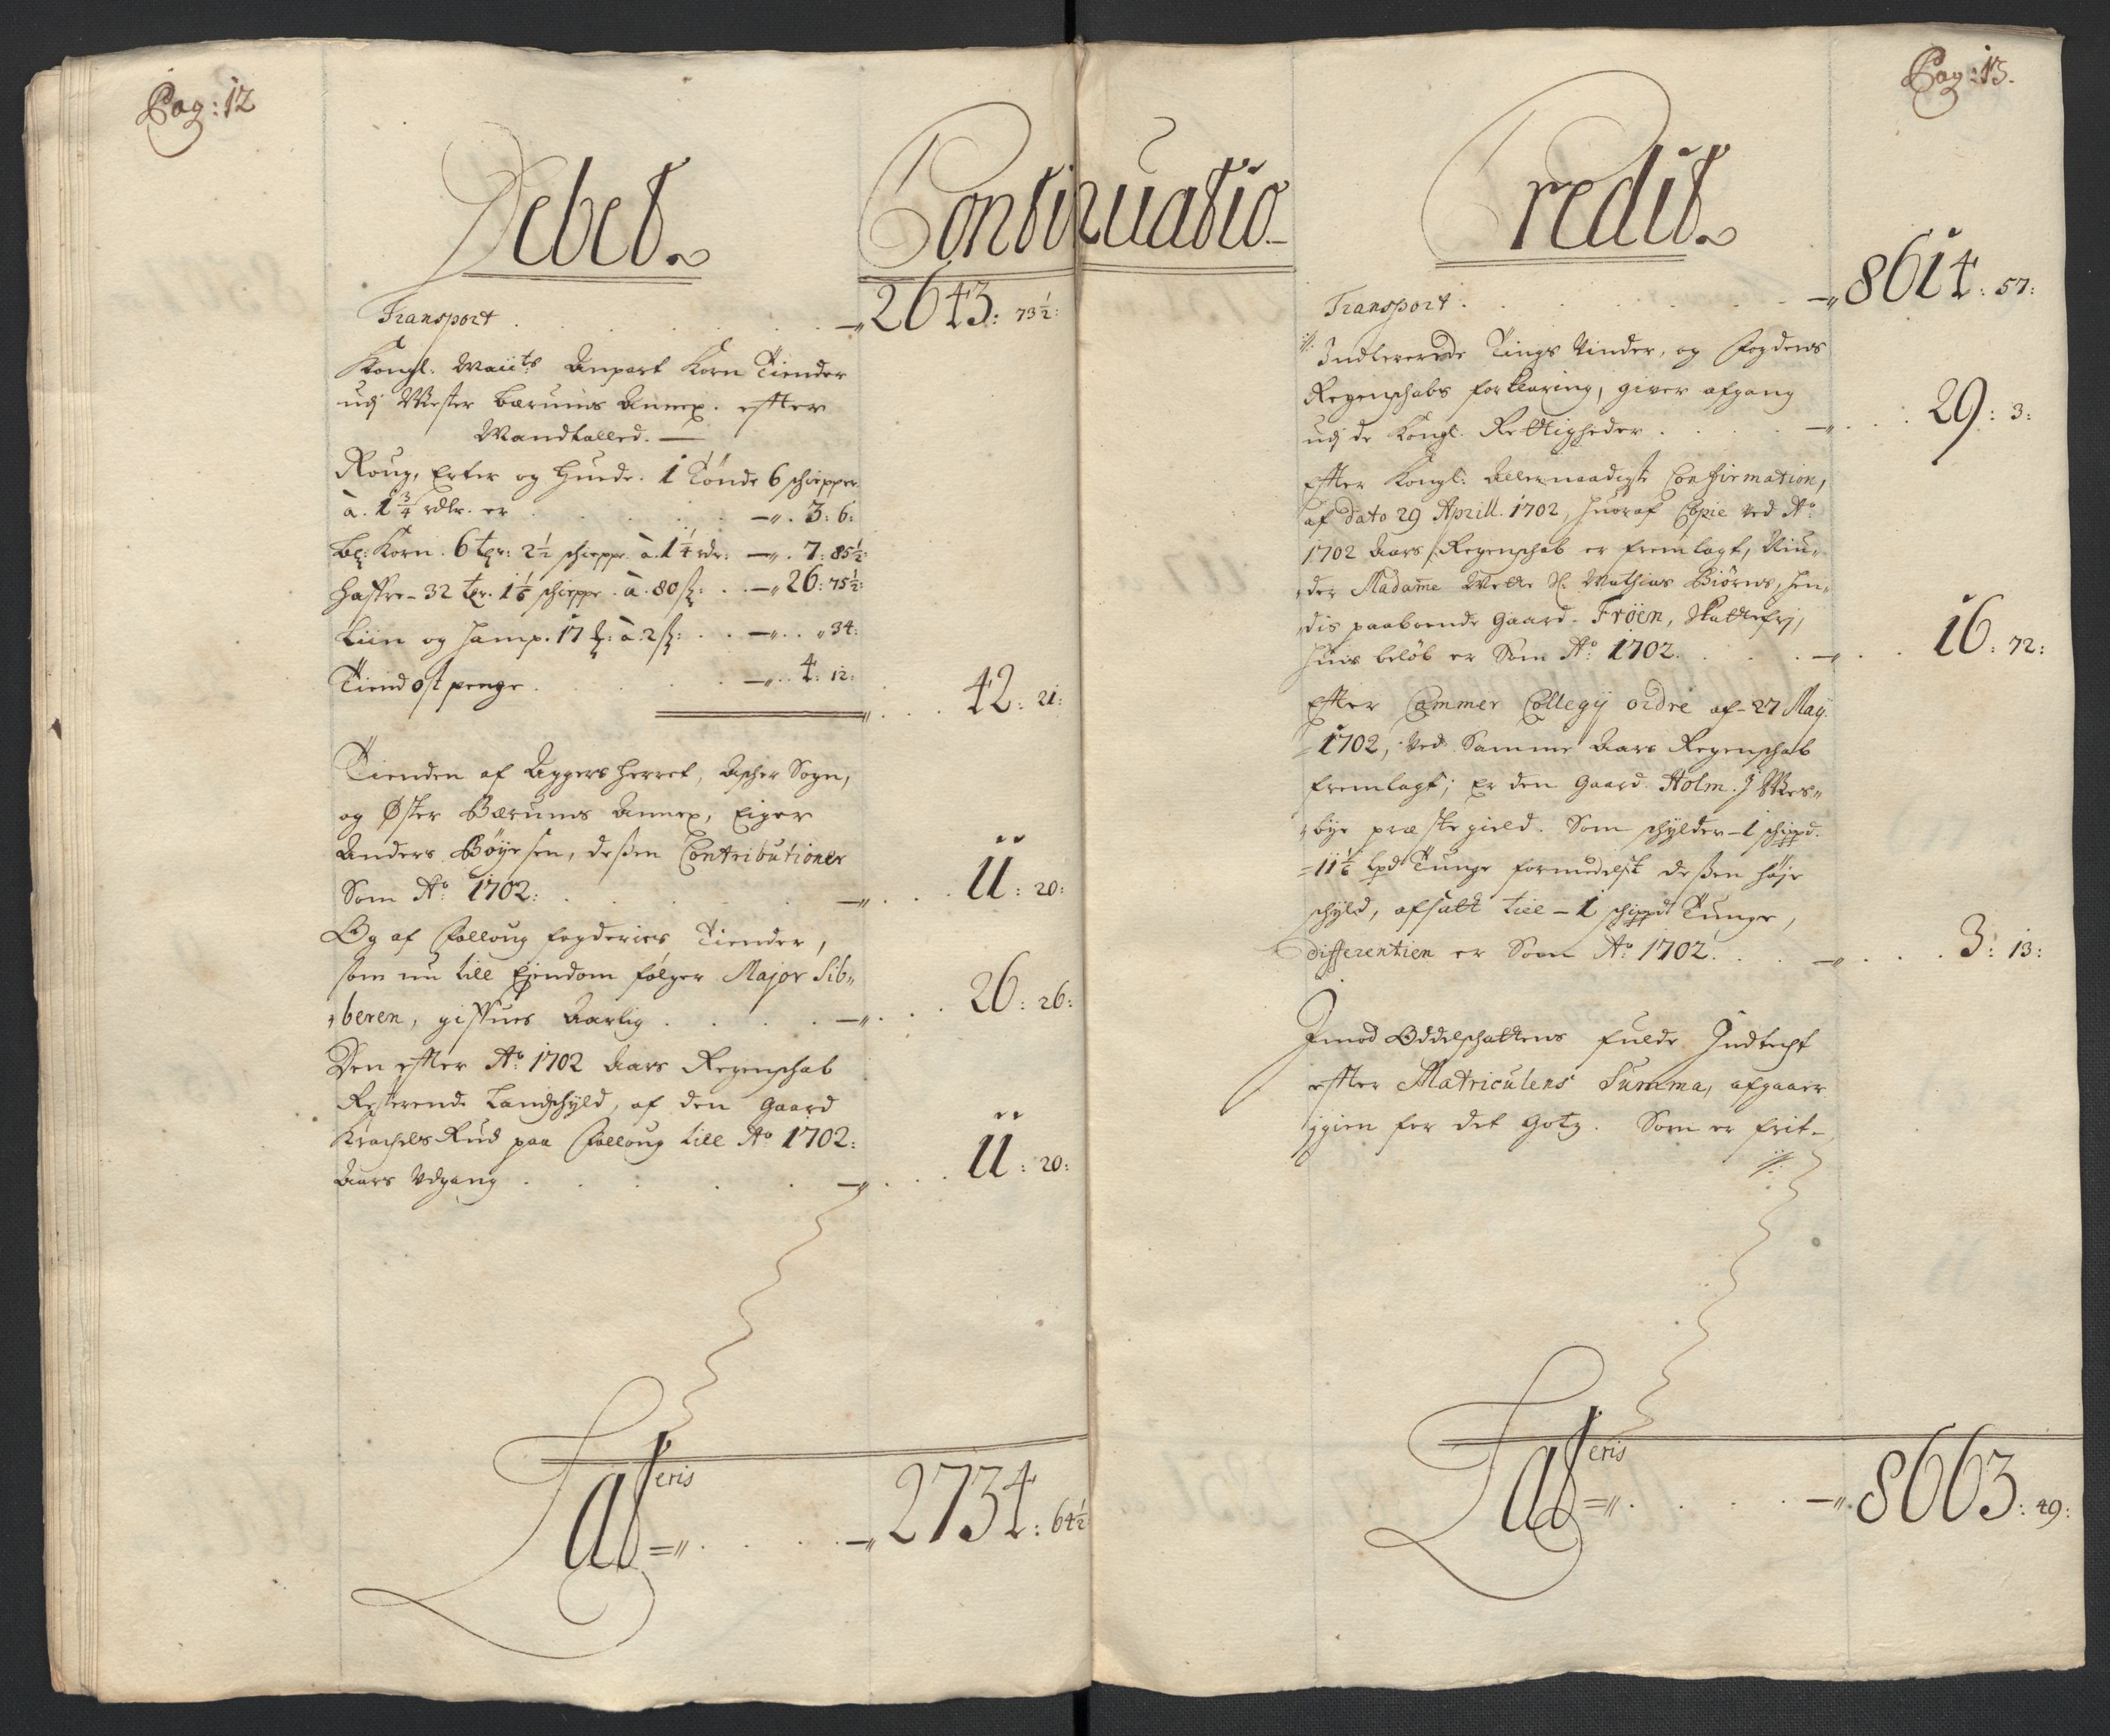 Pag: 12
Debet
Continuatio
Transport . . . . . . . . —„ 2643: 73½:
Kongl. Maiits Anpart Korn Tiender
udj Wester Bærums Annex. efter
Mandtalled. —
Roug, Erter og Huede. 1 Tönde 6 schiepper
à. 1¾ rdlr. er . . . . —„. 3: 6:
Bl: Korn. 6 tr: 2½ schieppe à. 1¼ rdr: —„. 7: 85½:
Haffre - 32 tr. 1⅙ schieppe . à. 80 s: . . —„ 26: 75½:
Liin og Hamp. 17 : à. 2 s: . . —„. . „ 34:
Tiend ost penge . . . . —„. . 4: 12:
42: 21:
Tienden af Aggers Herret, Ascher Sogn,
og Øster Bærums Annex, Eiger
Anders Böÿesen, deßen Contributioner
Som Ao: 1702: . . . . —„. . . 11: 20:
Og af Folloug fogderies Tiender,
som nu till Eyendom følger Major Sib„
„beren, giffues Aarlig . . . . —„. . . 26: 26:
Den efter Ao: 1702 Aars Regenschab
Resterende Landschyld, af den Gaard
Krachels Rud paa Folloug till Ao 1702:
Aars Udgang . . . . —„. . . 11: 20:
Lateris =„. . . . —„ 2734: 64½:
Pag: 13.
Credit
Transport . . . . . . . —„ 8614: 57:
Indleverede Tings Vinder, og Fogdens
Regenschabs forklaring, giver afgang
udj de Kongl. Rettigheder . . . . —„. . . 29: 3:
Efter Kongl: Allernaadigste Confirmation,
af dato 29 Aprill. 1702, huoraf Copie ved Ao:
1702 Aars Regenschab er fremlagt, Niu„
„der Madame Mette Sl. Mathias Biörns, hen„
„dis paaboende Gaard - Fröen, Skattefrj,
huis beløb er Som Ao: 1702. . . . . —„. . 16: 72:
Efter Cammer Collegij ordre af - 27 Maÿ.
= 1702, Ved Samme Aars Regenschab
fremlagt; Er den Gaard Holm. J Wes„
„bÿe præstegield. Som schylder - 1 schippd.
= 11⅙ Lpd Tunge formedelst deßen höÿe
schyld, afsatt till - 1 schippd Tunge,
differentien er Som Ao: 1702. . . . —„. . . . 3: 13:
Jmod Oddelschattens fulde Indtecht
efter Matriculens Summa, afgaaer
jgien for det Gotz. Som er frit -
Lateris =„. . . . —„ 8663: 49: